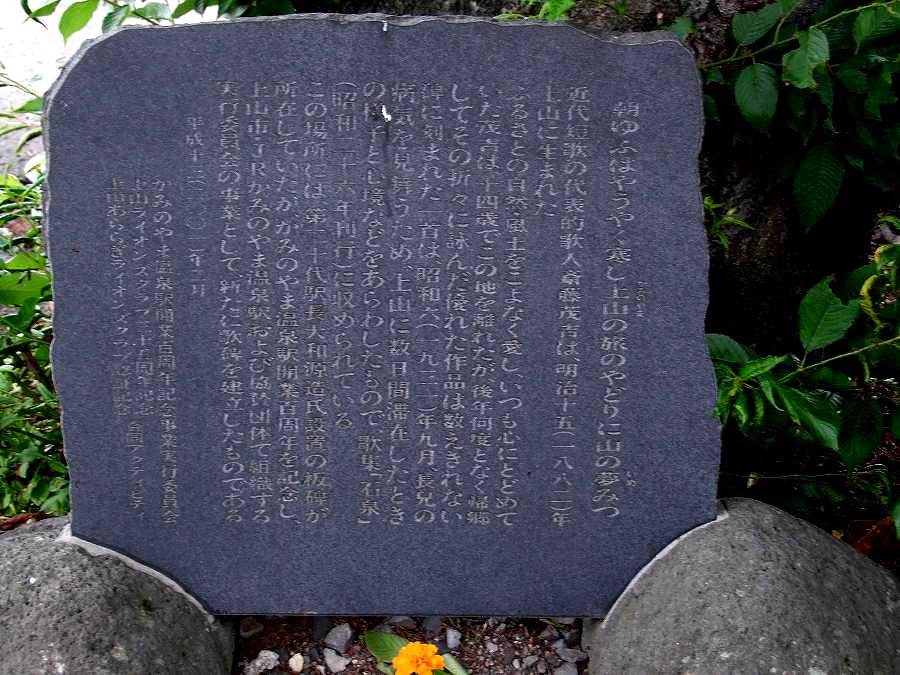 朝ゆふはやうやく寒し上山の旅のやどりに山の夢みつ
近代短歌の代表的歌人斎藤茂吉は、明治十五(一八八二)年
上山に生まれた
ふるさとの自然・風土をこよなく愛し、いつも心にとどめて
いた茂吉は十四歳でこの地を離れたが後年何度となく帰郷
してその折々に詠んだ優れた作品は数えきれない
碑に刻まれた一首は、昭和六(一九三一)年九月、長兄の
病気を見舞うため、上山に数日間滞在したとき
の様子と心境などをあらわしたもので、歌集「石泉」
(昭和二十六年刊行)に収められている
この場所には、第二十代駅長大和源造氏設置の板碑が
所在していたが、かみのやま温泉駅開業百周年を記念し、
上山市、JRかみのやま温泉駅および協賛団体で組織する
実行委員会の事業として、新たに歌碑を建立したものである
平成十三(二〇〇一)年二月
かみのやま温泉駅開業百周年記念事業実行委員会
上山ライオンズクラブ三十五周年記念 合同アクティビティ
上山あららぎライオンズクラブ認証記念